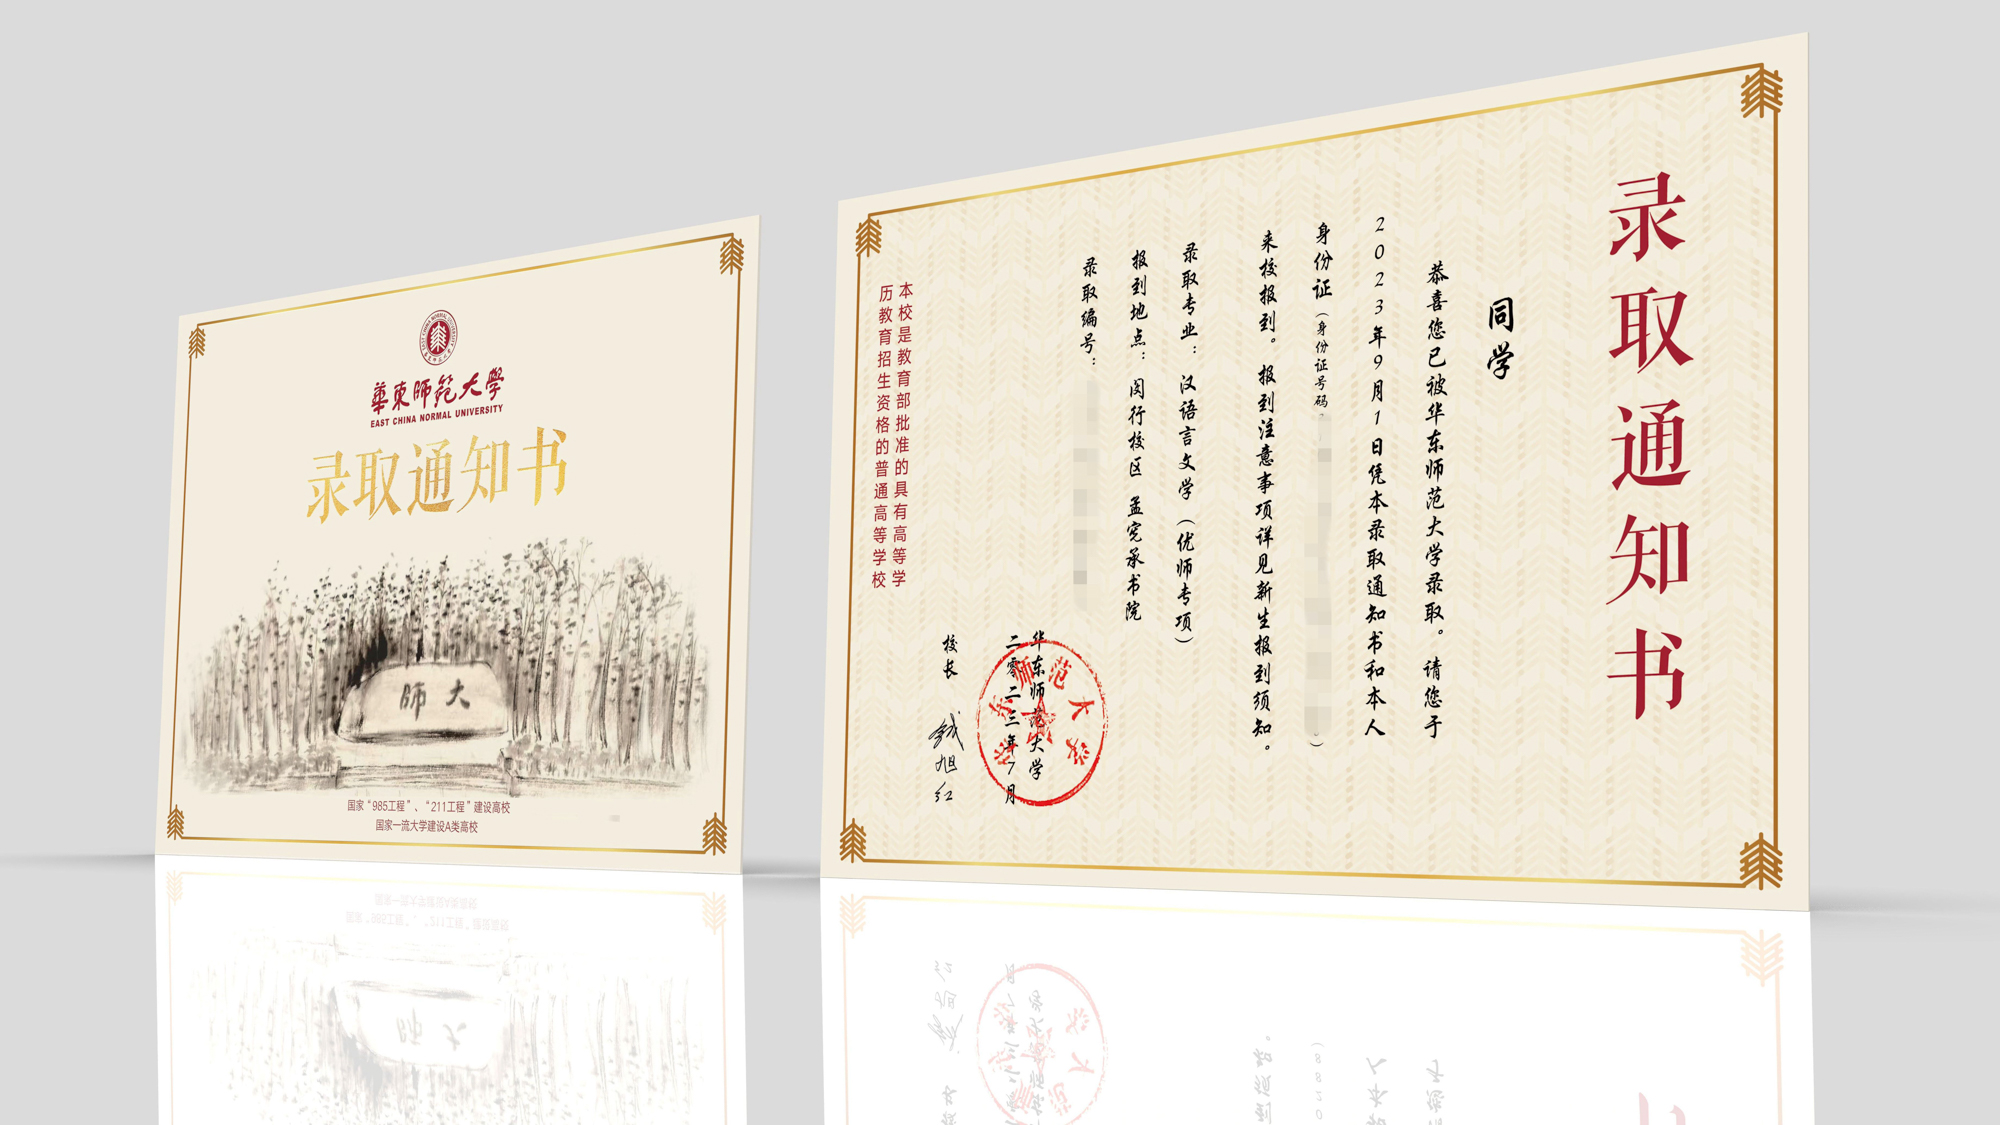 華東師範大學
EAST CHINA NORMAL UNIVERSITY
录取通知书
大師
国家“985工程”、“211工程”建设高校
国家一流大学建设A类高校
录取通知书
同学
恭喜您已被华东师范大学录取。请您于
2023年9月1日凭本录取通知书和本人
身份证（身份证号码：
）
来校报到。报到注意事项详见新生报到须知。
录取专业：汉语言文学（优师专项）
报到地点：闵行校区 孟宪承书院
录取编号：
华东师范大学
二零二三年7月
华东师范大学
校长 钱旭红
本校是教育部批准的具有高等学
历教育招生资格的普通高等学校